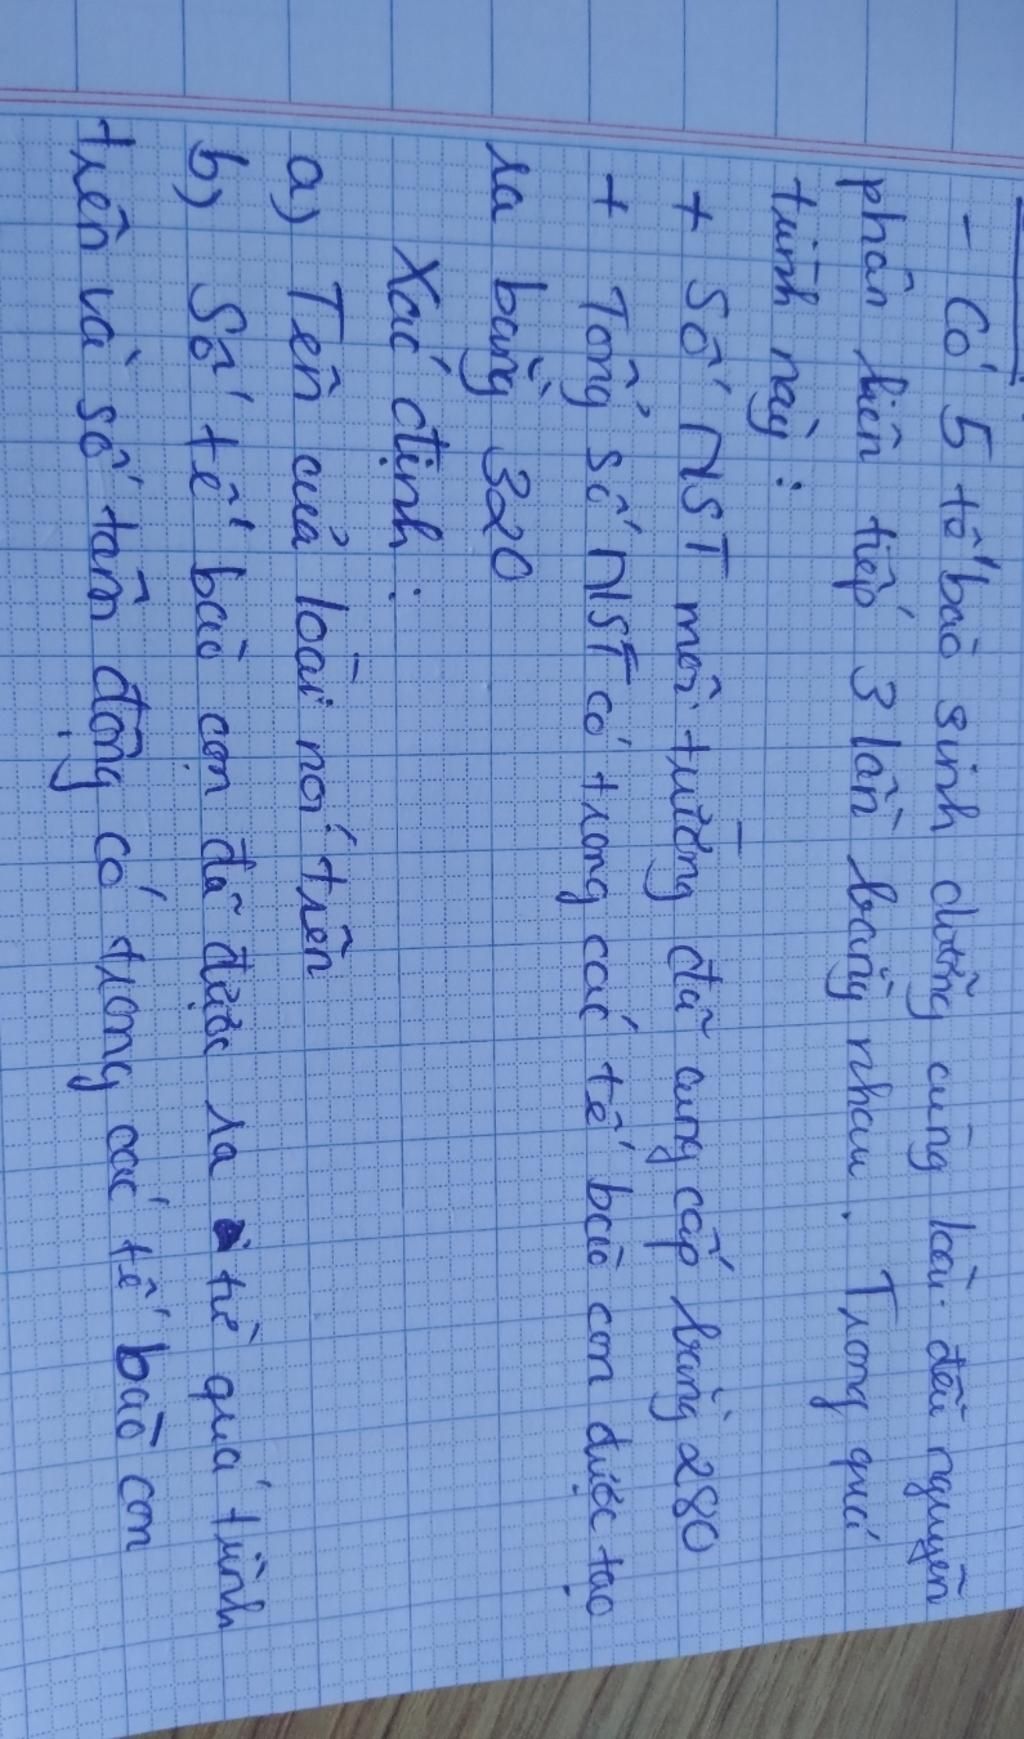 - Có 5 tế bào sinh dưỡng cùng loài đều nguyên
phân liên tiếp 3 lần bằng nhau. Trong quá
trình này:
+ Số NST môi trường đã cung cấp bằng 280
+ Tổng số NST có trong các tế bào con được tạo
ra bằng 320
Xác định:
a) Tên của loài nói trên
b) Số tế bào con đã được ra từ quá trình
trên và số tâm động có trong các tế bào con